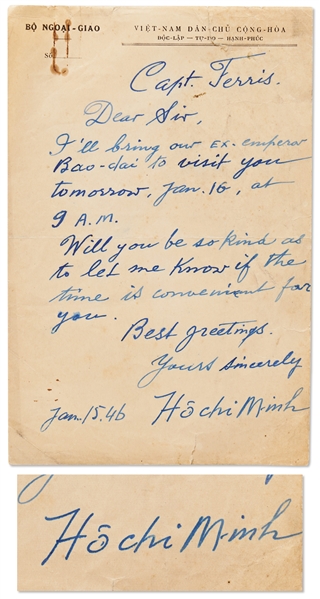 BỘ NGOẠI-GIAO
VIỆT-NAM DÂN-CHỦ CỘNG-HÒA
ĐỘC-LẬP — TỰ-DO — HẠNH-PHÚC
Số
Capt. Ferris.
Dear Sir,
I'll bring our ex-emperor
Bao-dai to visit you
tomorrow, Jan. 16, at
9 A.M.
Will you be so kind as
to let me know if the
time is convenient for
you.
Best greetings.
Yours sincerely
Jan. 15.46
Hô chi Minh
Hô chi Minh